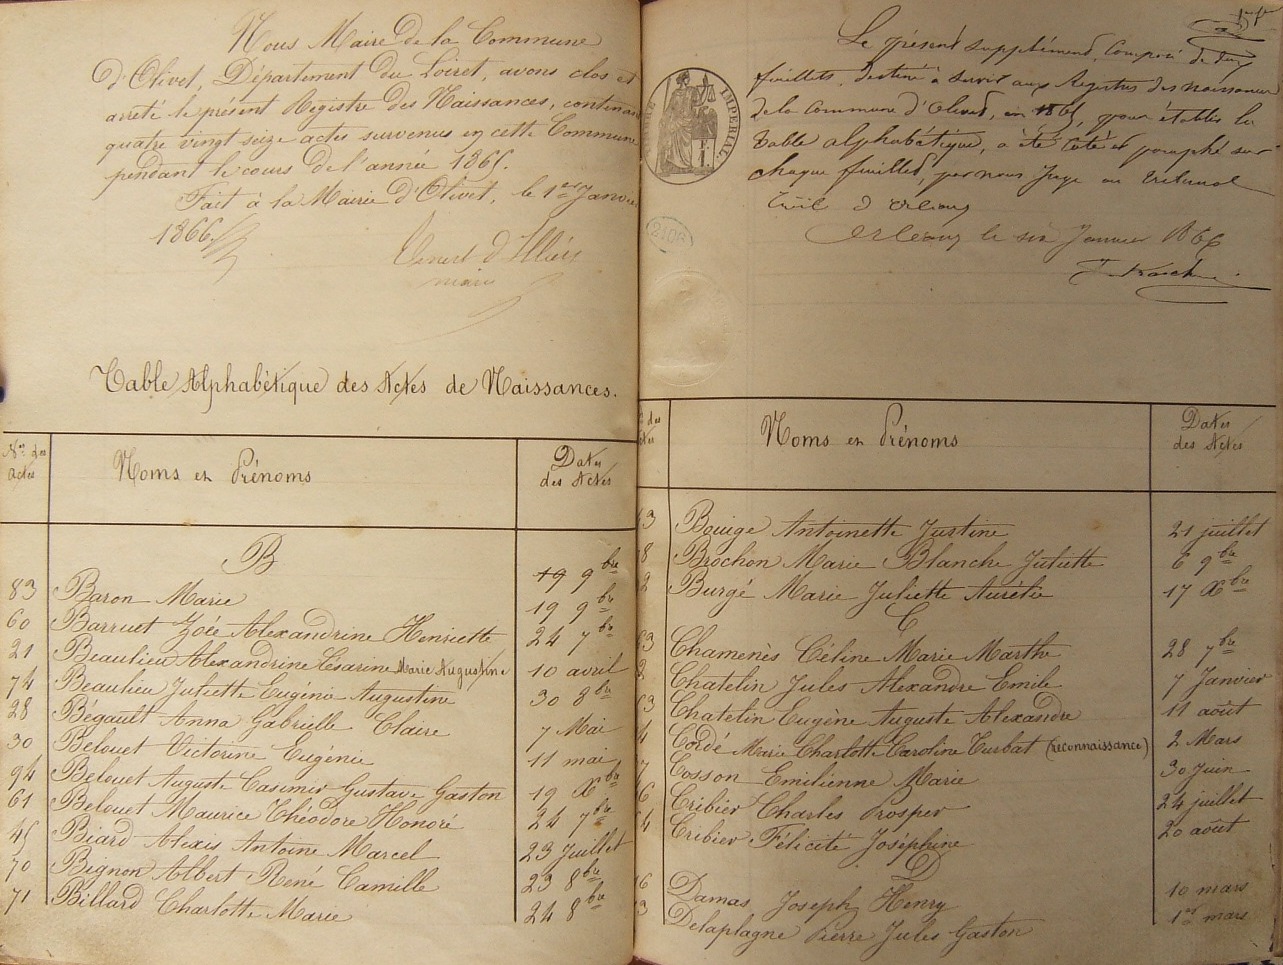 Nous Maire de la Commune
d'Olivet, Département du Loiret, avons clos et
arrêté le présent Registre des Naissances, contenant
quatre vingt seize actes survenus en cette Commune
pendant le cours de l'année 1865.
Fait à la Mairie d'Olivet, le 1er Janvier
1866
d'Illiers
maire
Table Alphabétique des Actes de Naissances.
Nos des Actes
Noms et Prénoms
Dates des Actes
B
19 9bre
83 Baron Marie 19 9bre
60 Barruet Zoée Alexandrine Henriette 24 7bre
21 Beaulieu Alexandrine Césarine Marie Augustine 10 avril
74 Beaulieu Juliette Eugénie Augustine 30 8bre
28 Bégault Anna Gabrielle Claire 7 Mai
30 Belouet Victorine Eugénie 11 mai
94 Belouet Auguste Casimir Gustave Gaston 19 Xbre
61 Belouet Maurice Théodore Honoré 24 7bre
45 Biard Alexis Antoine Marcel 23 Juillet
70 Bignon Albert René Camille 23 8bre
71 Billard Charlotte Marie 24 8bre
1er ft
Le présent supplément, composé de deux
feuillets, destiné à servir aux Registres des naissances
de la commune d'Olivet, en 1865, pour établir la
table alphabétique, a été coté et paraphé sur
chaque feuillet, par nous Juge au tribunal
Civil d'Orléans
Orléans le six Janvier 1866
TIMBRE IMPERIAL
2106
des
Actes
Noms et Prénoms
Dates des Actes
3 Bouige Antoinette Justine 21 juillet
8 Brochon Marie Blanche Juliette 6 9bre
2 Burgé Marie Juliette Aurélie 17 Xbre
C
3 Chamenès Céline Marie Marthe 28 7bre
2 Chatelin Jules Alexandre Emile 7 Janvier
3 Chatelin Eugène Auguste Alexandre 11 août
4 Cordé Marie Charlotte Caroline Turbat (reconnaissance) 2 Mars
Cosson Emilienne Marie 30 Juin
6 Cribier Charles Prosper 24 juillet
4 Cribier Félicité Joséphine 20 août
D
6 Damas Joseph Henry 10 mars
3 Delaplagne Pierre Jules Gaston 1er mars